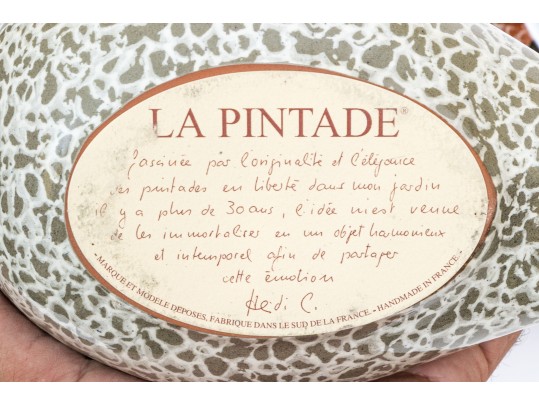 LA PINTADE®
Fascinée par l'originalité et l'élégance
des pintades en liberté dans mon jardin
il y a plus de 30 ans, l'idée m'est venue
de les immortaliser en un objet harmonieux
et intemporel afin de partager
cette émotion
Heidi C.
• MARQUE ET MODELE DEPOSES, FABRIQUE DANS LE SUD DE LA FRANCE. • HANDMADE IN FRANCE. •